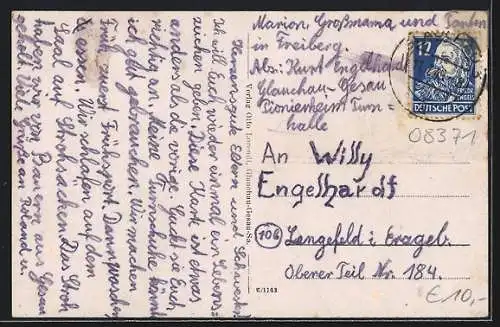 Herzensgute Eltern und Schwester!
Ich will Euch wieder einmal ein Lebens-
zeichen geben. Diese Kart ist etwas
anders als die vorige. Guckt sie Euch
richtig an. Meine Turnschuhe könnt
ich gebrauchen. Wir machen
früh zuerst Frühsport. Dann waschen
& essen. Wir schlafen auf dem
Saal auf Strohsäcken. Das Stroh
haben wir von Bauern aus Gesau
geholt. Viele Grüße an Roland u.
Marion Großmama und Tanten
in Freiberg.
Abs.: Kurt Engelhardt
Glauchau-Gesau
Pionierheim Turn=
halle
12
DEUTSCHE POST
08371
An Willy
Engelhardt
(10b)
Lengefeld i. Erzgeb.
Oberer Teil Nr. 184.
€ 10,-
Verlag Otto Glauchau-Gesau-Sa.
K/1243